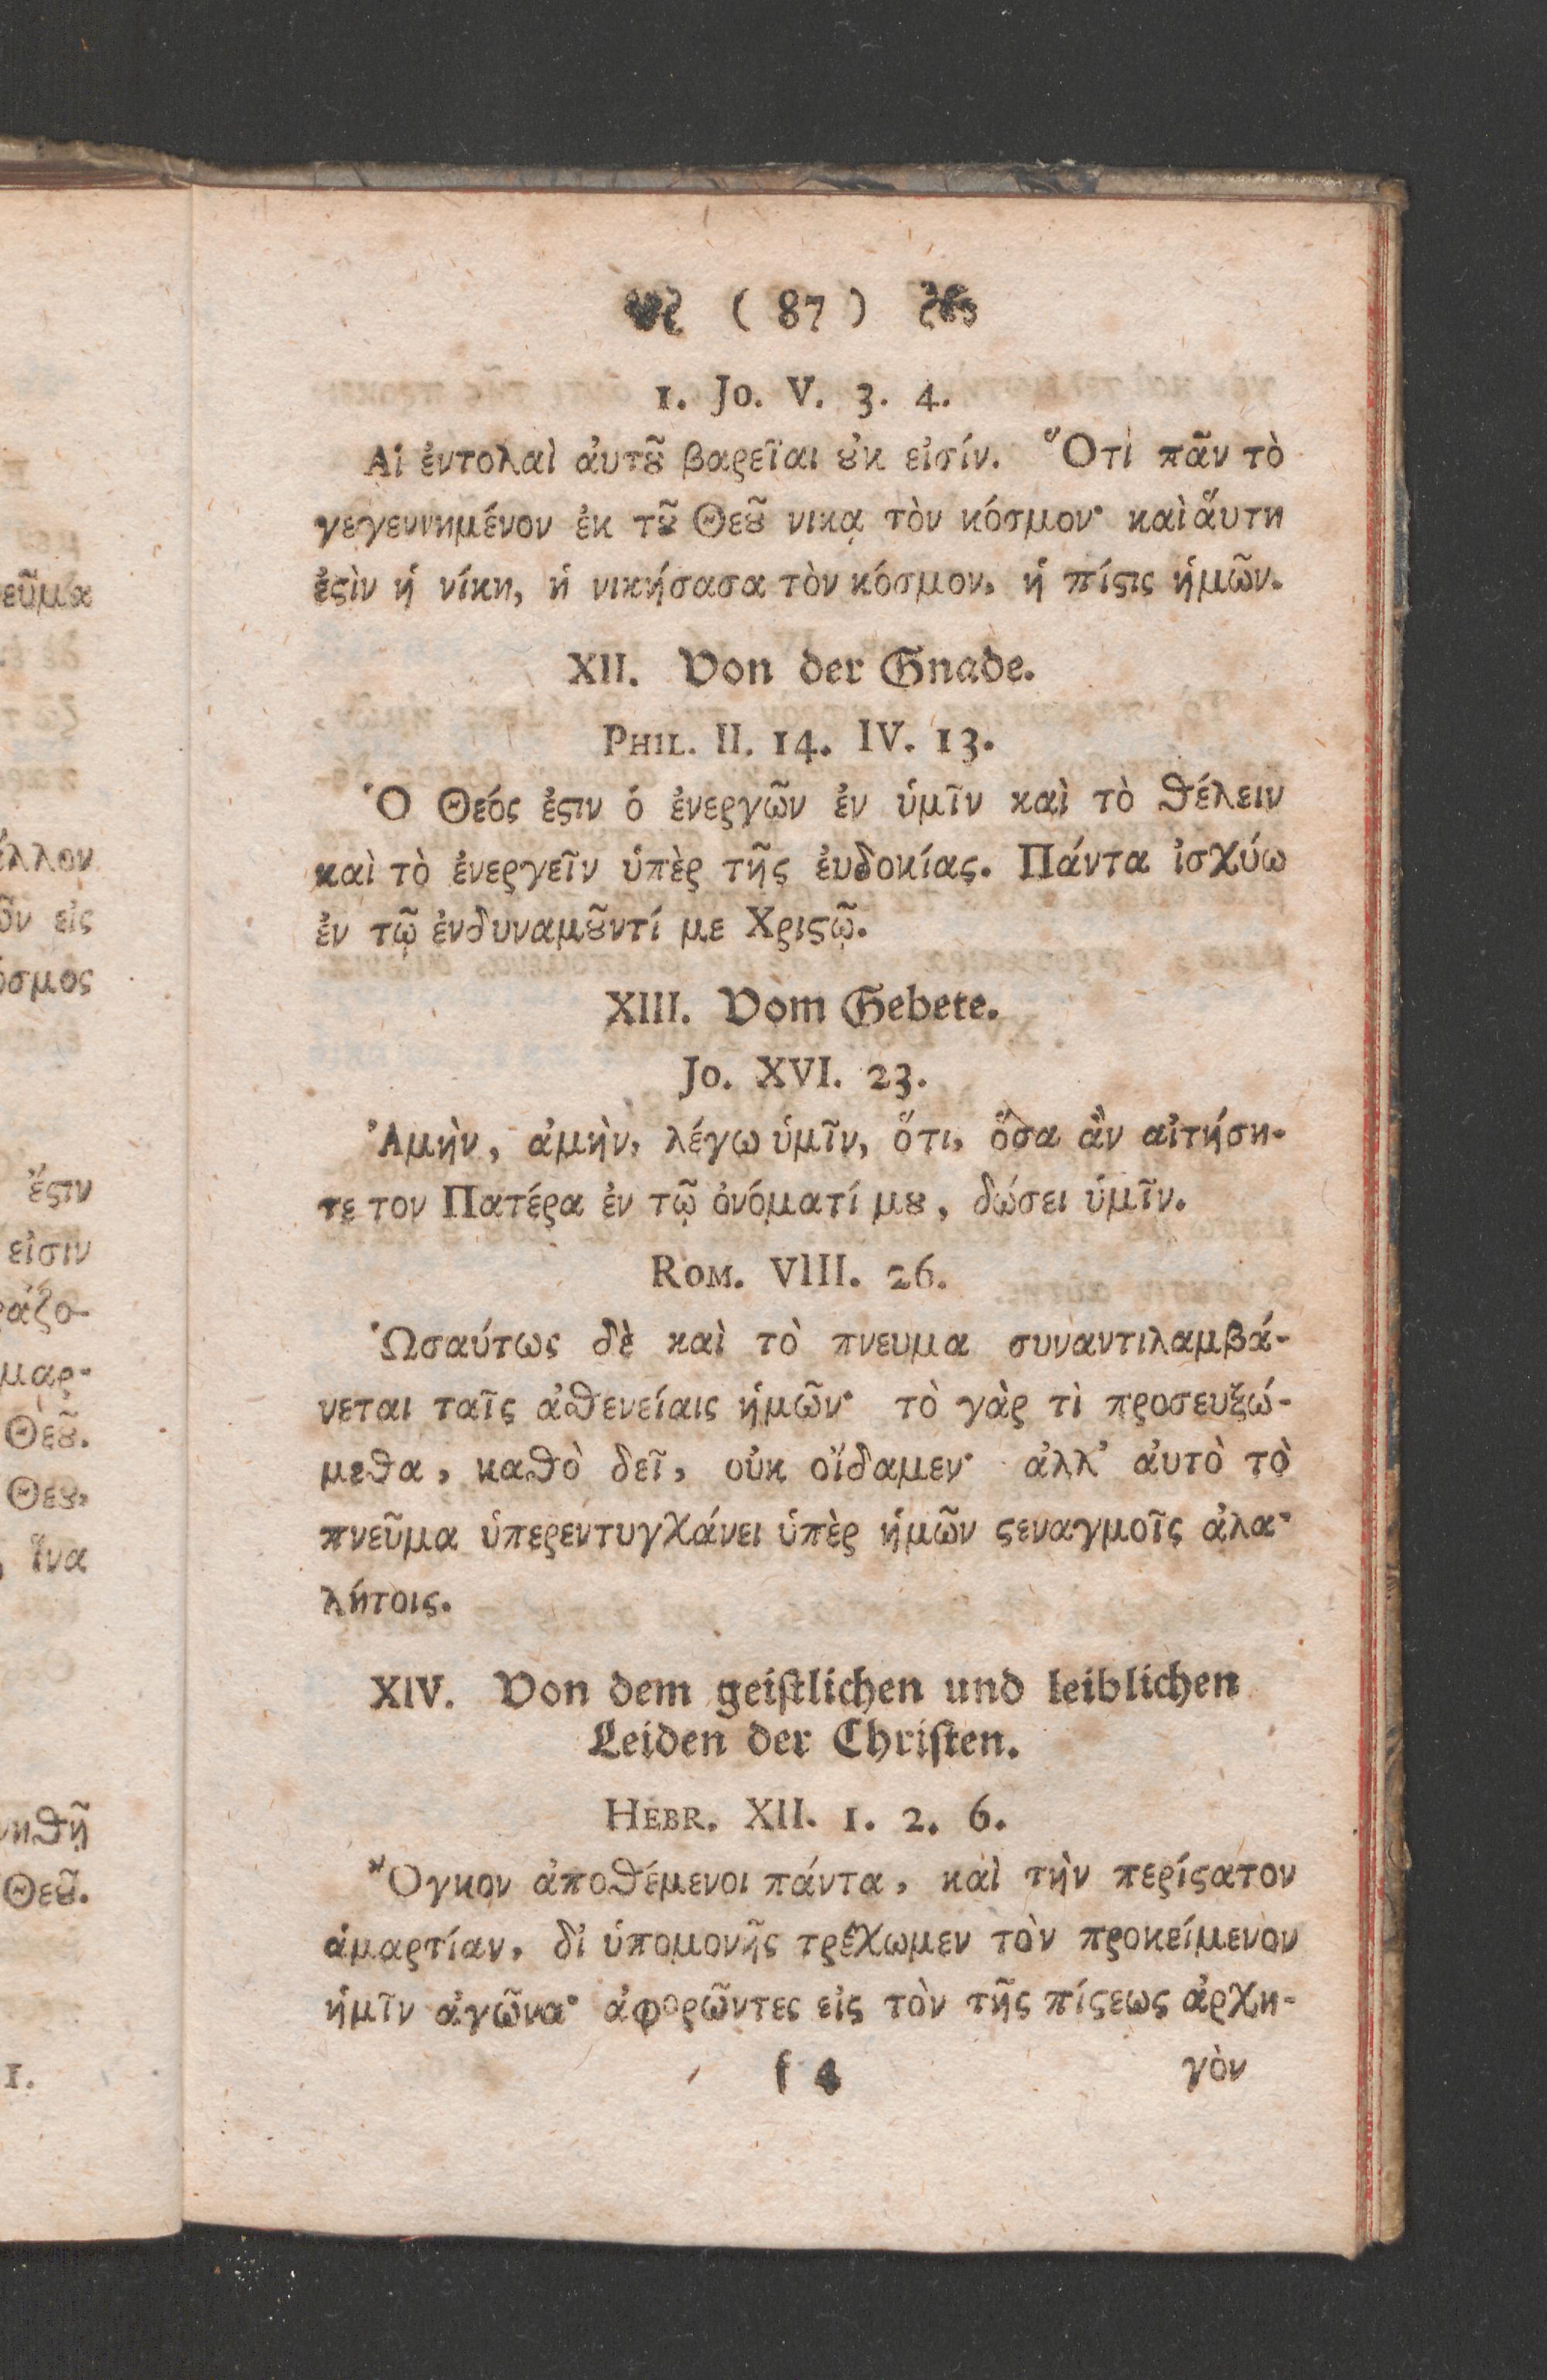 ( 87 )
1. Jo. V. 3. 4.
Αἱ ἐντολαὶ ἀυτȣ͂ βαρεῖαι ȣ̓κ εἰσίν. Ὅτι πᾶν τὸ
γεγεννημένον ἐκ τȣ͂ Θεȣ͂ νικᾳ τὸν κόσμον· καὶ ἅυτη
ἐϛὶν ἡ νίκη, ἡ νικήσασα τὸν κόσμον, ἡ πίϛις ἡμῶν.
XII. Von der Gnade.
Phil. II. 14. IV. 13.
Ὁ Θεός ἐϛιν ὁ ἐνεργῶν ἐν ὑμῖν καὶ τὸ θέλειν
καὶ τὸ ἐνεργεῖν ὑπὲρ τῆς ἐυδοκίας. Πάντα ἰσχύω
ἐν τῷ ἐνδυναμȣ͂ντί με Χριϛῷ.
XIII. Vom Gebete.
Jo. XVI. 23.
Ἀμὴν, ἀμὴν, λέγω ὑμῖν, ὅτι, ὅσα ἂν αἰτήση-
τε τον Πατέρα ἐν τῷ ὀνόματί μȣ, δώσει ὑμῖν.
Rom. VIII. 26.
Ὡσαύτως δὲ καὶ τὸ πνευμα συναντιλαμβά-
νεται ταῖς ἀσθενείαις ἡμῶν· τὸ γὰρ τὶ προσευξώ-
μεθα, καθὸ δεῖ, οὐκ οἴδαμεν· ἀλλ' ἀυτὸ τὸ
πνεῦμα ὑπερεντυγχάνει ὑπὲρ ἡμῶν ϛεναγμοῖς ἀλα-
λήτοις.
XIV. Von dem geiſtlichen und leiblichen
Leiden der Chriſten.
Hebr. XII. 1. 2. 6.
Ὄγκον ἀποθέμενοι πάντα, καὶ τὴν περίϛατον
ἁμαρτίαν, δἰ ὑπομονῆς τρέχωμεν τὸν προκείμενον
ἡμῖν ἀγῶνα· ἀφορῶντες εἰς τὸν τῆς πίϛεως ἀρχη-
f 4 γὸν